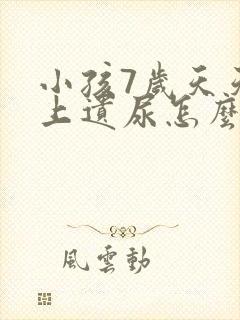 小孩7歲天天
上遺尿怎麼
風雲動